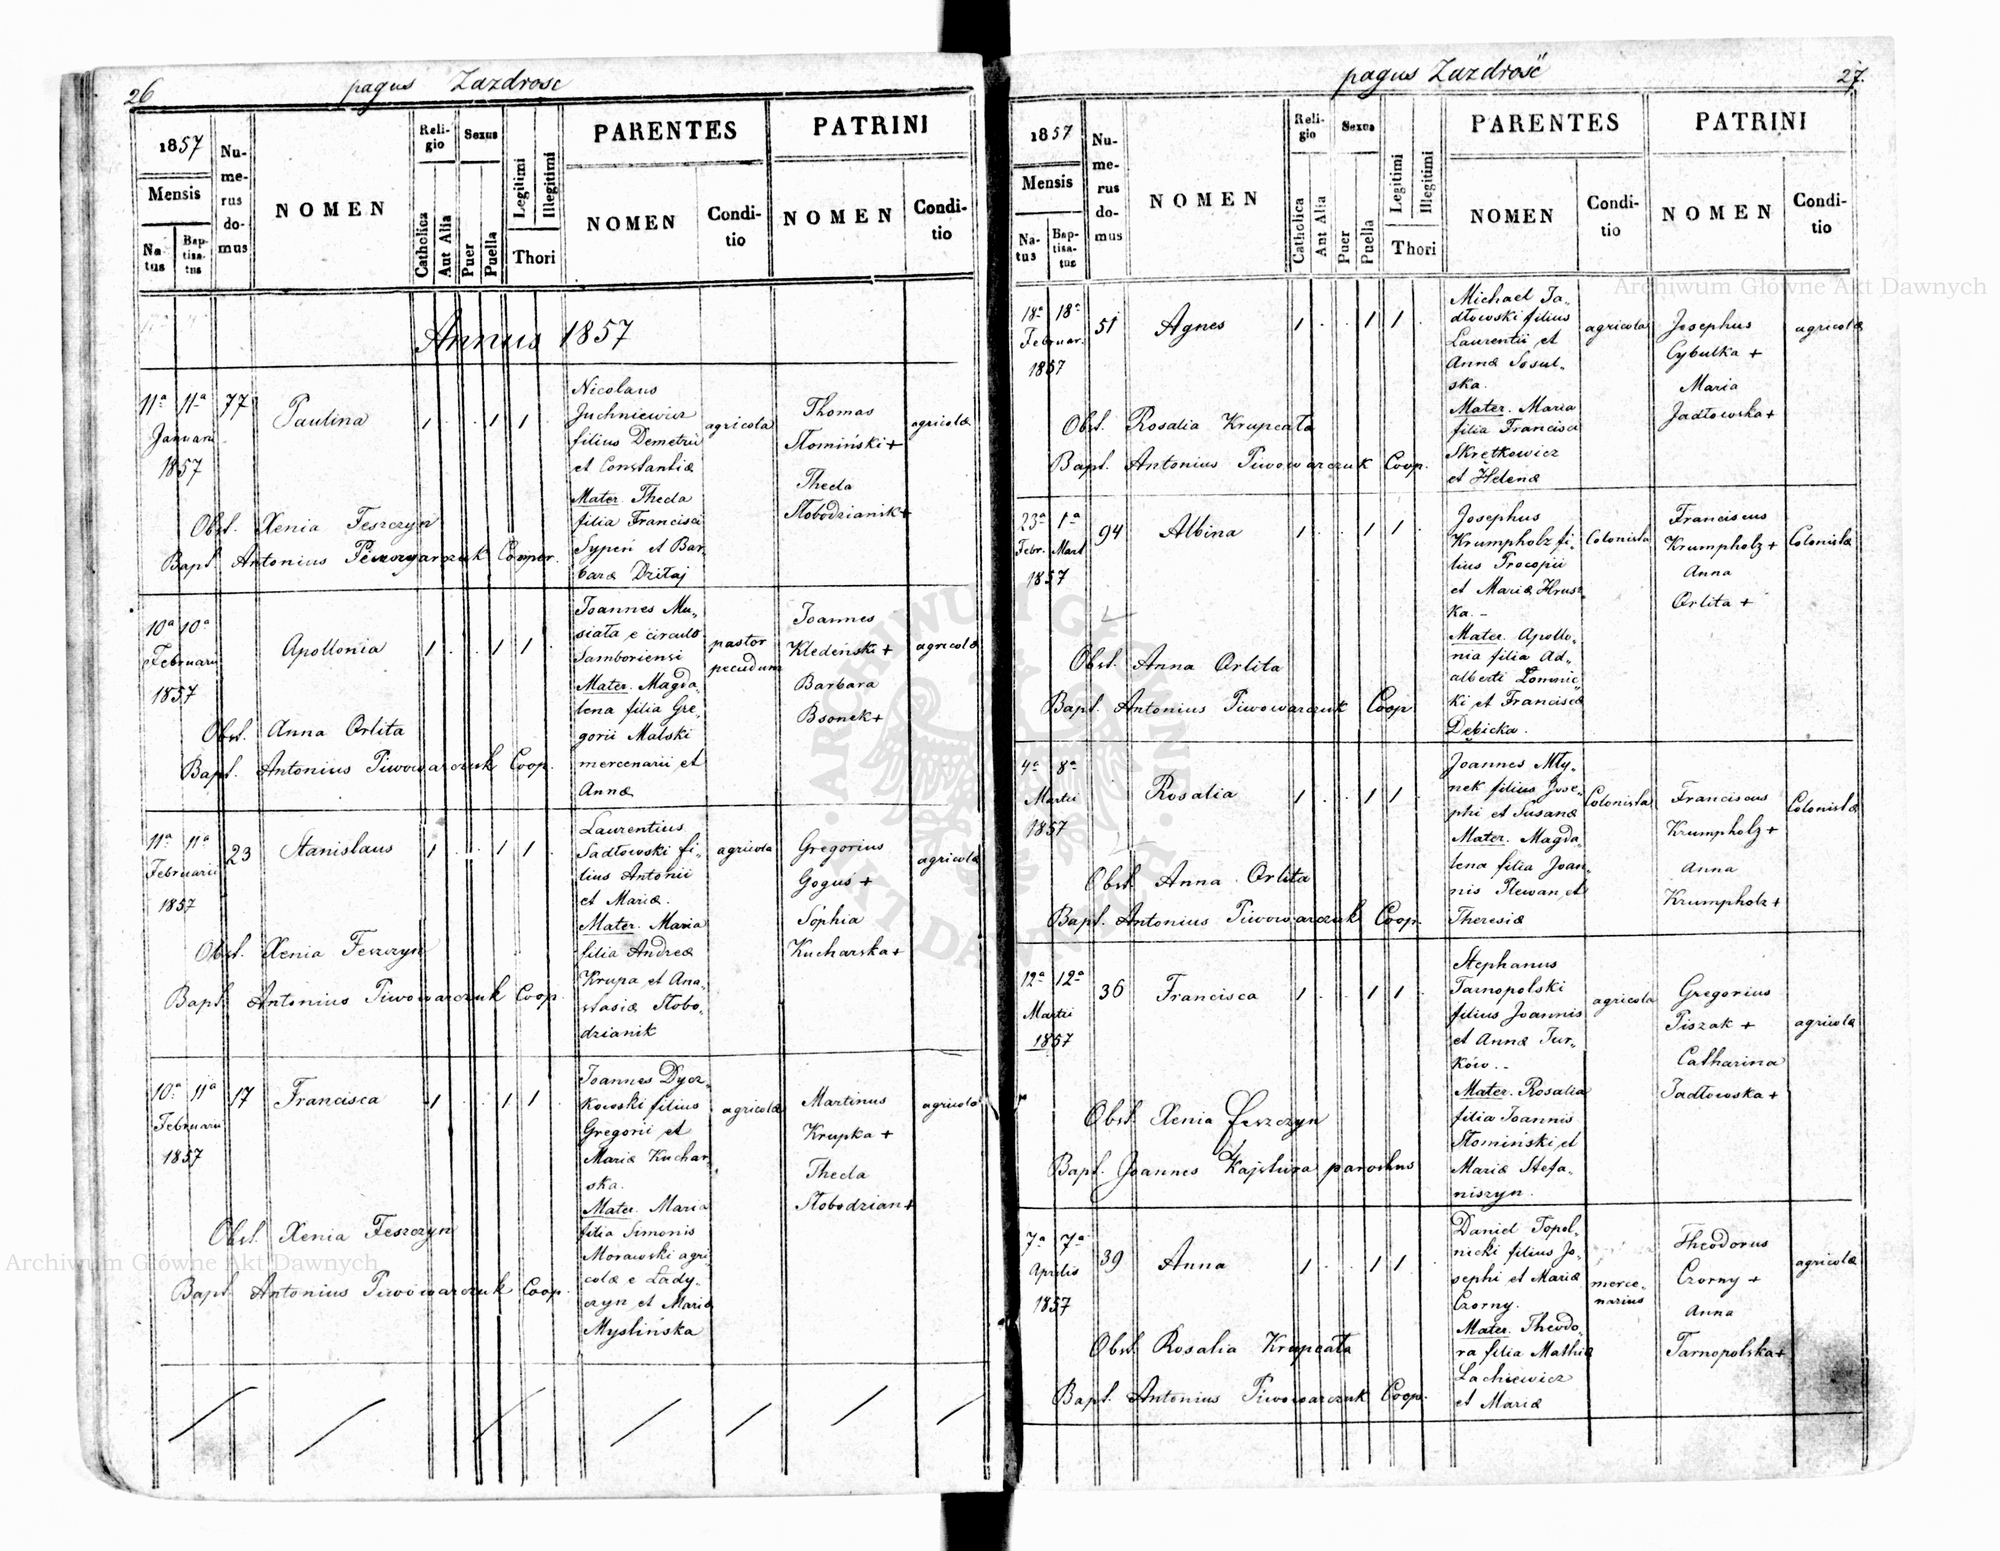 26
pagus Zazdrosc
1857
Mensis
Na-
tus
Bap-
tisa-
tus
Nu-
me-
rus
do-
mus
NOMEN
Reli-
gio
Catholica
Aut Alia
Sexus
Puer
Puella
Legitimi
Illegitimi
Thori
PARENTES
NOMEN
Condi-
tio
PATRINI
NOMEN
Condi-
tio
Annus 1857
11a 11a 77 Paulina 1 . . 1 1 .
Januarii
1857
Nicolaus
Juchniewicz
filius Demetrii
et Constantiæ
Mater. Thecla
filia Francisci
Sypeń et Bar-
baræ Dziłaj
agricola
Thomas
Słomiński +
Thecla
Słobodzianik +
agricolæ
Obst. Xenia Feszczyn
Bapt. Antonius Piwowarczuk Cooper.
10a 10a Apollonia 1 . . 1 1 .
Februarii
1857
Joannes Mu-
siała e circulo
Samboriensi
Mater. Magda-
lena filia Gre-
gorii Malski
mercenarii et
Annæ
pastor
pecudum
Joannes
Kledeński +
Barbara
Bsonek +
agricolæ
Obst. Anna Orlita
Bapt. Antonius Piwowarczuk Coop.
11a 11a 23 Stanislaus 1 . . 1 1 .
Februarii
1857
Laurentius
Sadłowski fi-
lius Antonii
et Mariæ.
Mater. Maria
filia Andreæ
Krupa et Ana-
stasiæ Słobo-
dzianik
agricola
Gregorius
Goguś +
Sophia
Kucharska +
agricolæ
Obst. Xenia Feszczyn
Bapt. Antonius Piwowarczuk Coop.
10a 11a 17 Francisca 1 . . 1 1 .
Februarii
1857
Joannes Dycz-
kowski filius
Gregorii et
Mariæ Kuchar-
ska.
Mater. Maria
filia Simonis
Morawski agri-
colæ e Lady-
czyn et Mariæ
Myslińska
agricola
Martinus
Krupka +
Thecla
Słobodzian +
agricolæ
Obst. Xenia Feszczyn
Bapt. Antonius Piwowarczuk Coop.
pagus Zazdrość
27.
1857
Mensis
Na-
tus
Bap-
tisa-
tus
Nu-
me-
rus
do-
mus
NOMEN
Reli-
gio
Catholica
Aut Alia
Sexus
Puer
Puella
Legitimi
Illegitimi
Thori
PARENTES
NOMEN
Condi-
tio
PATRINI
NOMEN
Condi-
tio
18a 18a 51 Agnes 1 . . 1 1 .
Februar.
1857
Michael Ja-
dłowski filius
Laurentii et
Annæ Sosul-
ska.
Mater. Maria
filia Francisci
Skrętkowicz
et Helenæ
agricola
Josephus
Cybulka +
Maria
Jadłowska +
agricolæ
Obst. Rosalia Krupcała
Bapt. Antonius Piwowarczuk Coop.
23a 1a 94 Albina 1 . . 1 1 .
Febr. Mart
1857
Josephus
Krumpholz fi-
lius Procopii
et Mariæ Hrus-
ka. -
Mater. Apollo-
nia filia Ad-
alberti Łomnic-
ki et Franciscæ
Dębicka.
Colonista
Franciscus
Krumpholz +
Anna
Orlita +
Colonistæ
Obst. Anna Orlita
Bapt. Antonius Piwowarczuk Coop
4a 8a Rosalia 1 . . 1 1 .
Martii
1857
Joannes Mły-
nek filius Jose-
phi et Susanæ
Mater. Magda-
lena filia Joan-
nis Plewan et
Theresiæ
Colonista
Franciscus
Krumpholz +
Anna
Krumpholz +
Colonistæ
Obst. Anna Orlita
Bapt. Antonius Piwowarczuk Coop.
12a 12a 36 Francisca 1 . . 1 1 .
Martii
1857
Stephanus
Tarnopolski
filius Joannis
et Annæ Tur-
ków. -
Mater. Rosalia
filia Joannis
Słomiński et
Mariæ Stefa-
niszyn.
agricola
Gregorius
Piszak +
Catharina
Jadłowska +
agricolæ
Obst. Xenia Feszczyn
Bapt. Joannes Kajstura parochus
7a 7a 39 Anna 1 . . 1 1 .
Aprilis
1857
Daniel Topol-
nicki filius Jo-
sephi et Mariæ
Czorny.
Mater. Theodo-
ra filia Mathiæ
Lachiewicz
et Mariæ
merce-
narius
Theodorus
Czorny +
Anna
Tarnopolska +
agricolæ
Obst. Rosalia Krupcała
Bapt. Antonius Piwowarczuk Coop.
Archiwum Główne Akt Dawnych
Archiwum Główne Akt Dawnych
ARCHIWUM GŁÓWNE AKT DAWNYCH